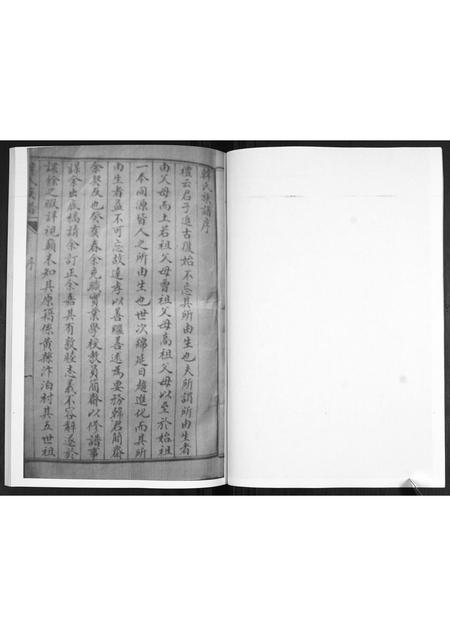 韓氏族譜序
禮云君子返古復始不忘其所由生也夫所謂所由生者
由父母而上若祖父母曾祖父母高祖父母以至於始祖
一本同源皆人之所由生也世次綿延日趨進化而其所
由生者益不可忘故達孝以善繼善述為要務韓君簡齋
余契友也癸亥春余充職實業學校教員簡齋以修譜事
謀余出底稿請余訂正余嘉其有敦睦志義不容辭遂於
課餘之暇詳祖籍未知其原籍係黃縣泊村其五世祖
序